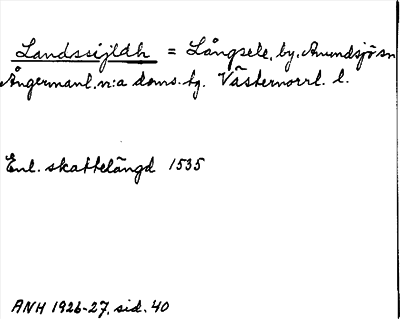 Landssijldh = Långsele, by, Anundsjö sn
Ångermanl. n:a doms.-tg. Västernorrl. l.
Enl. skattelängd 1535
ANH 1926-27, sid. 40